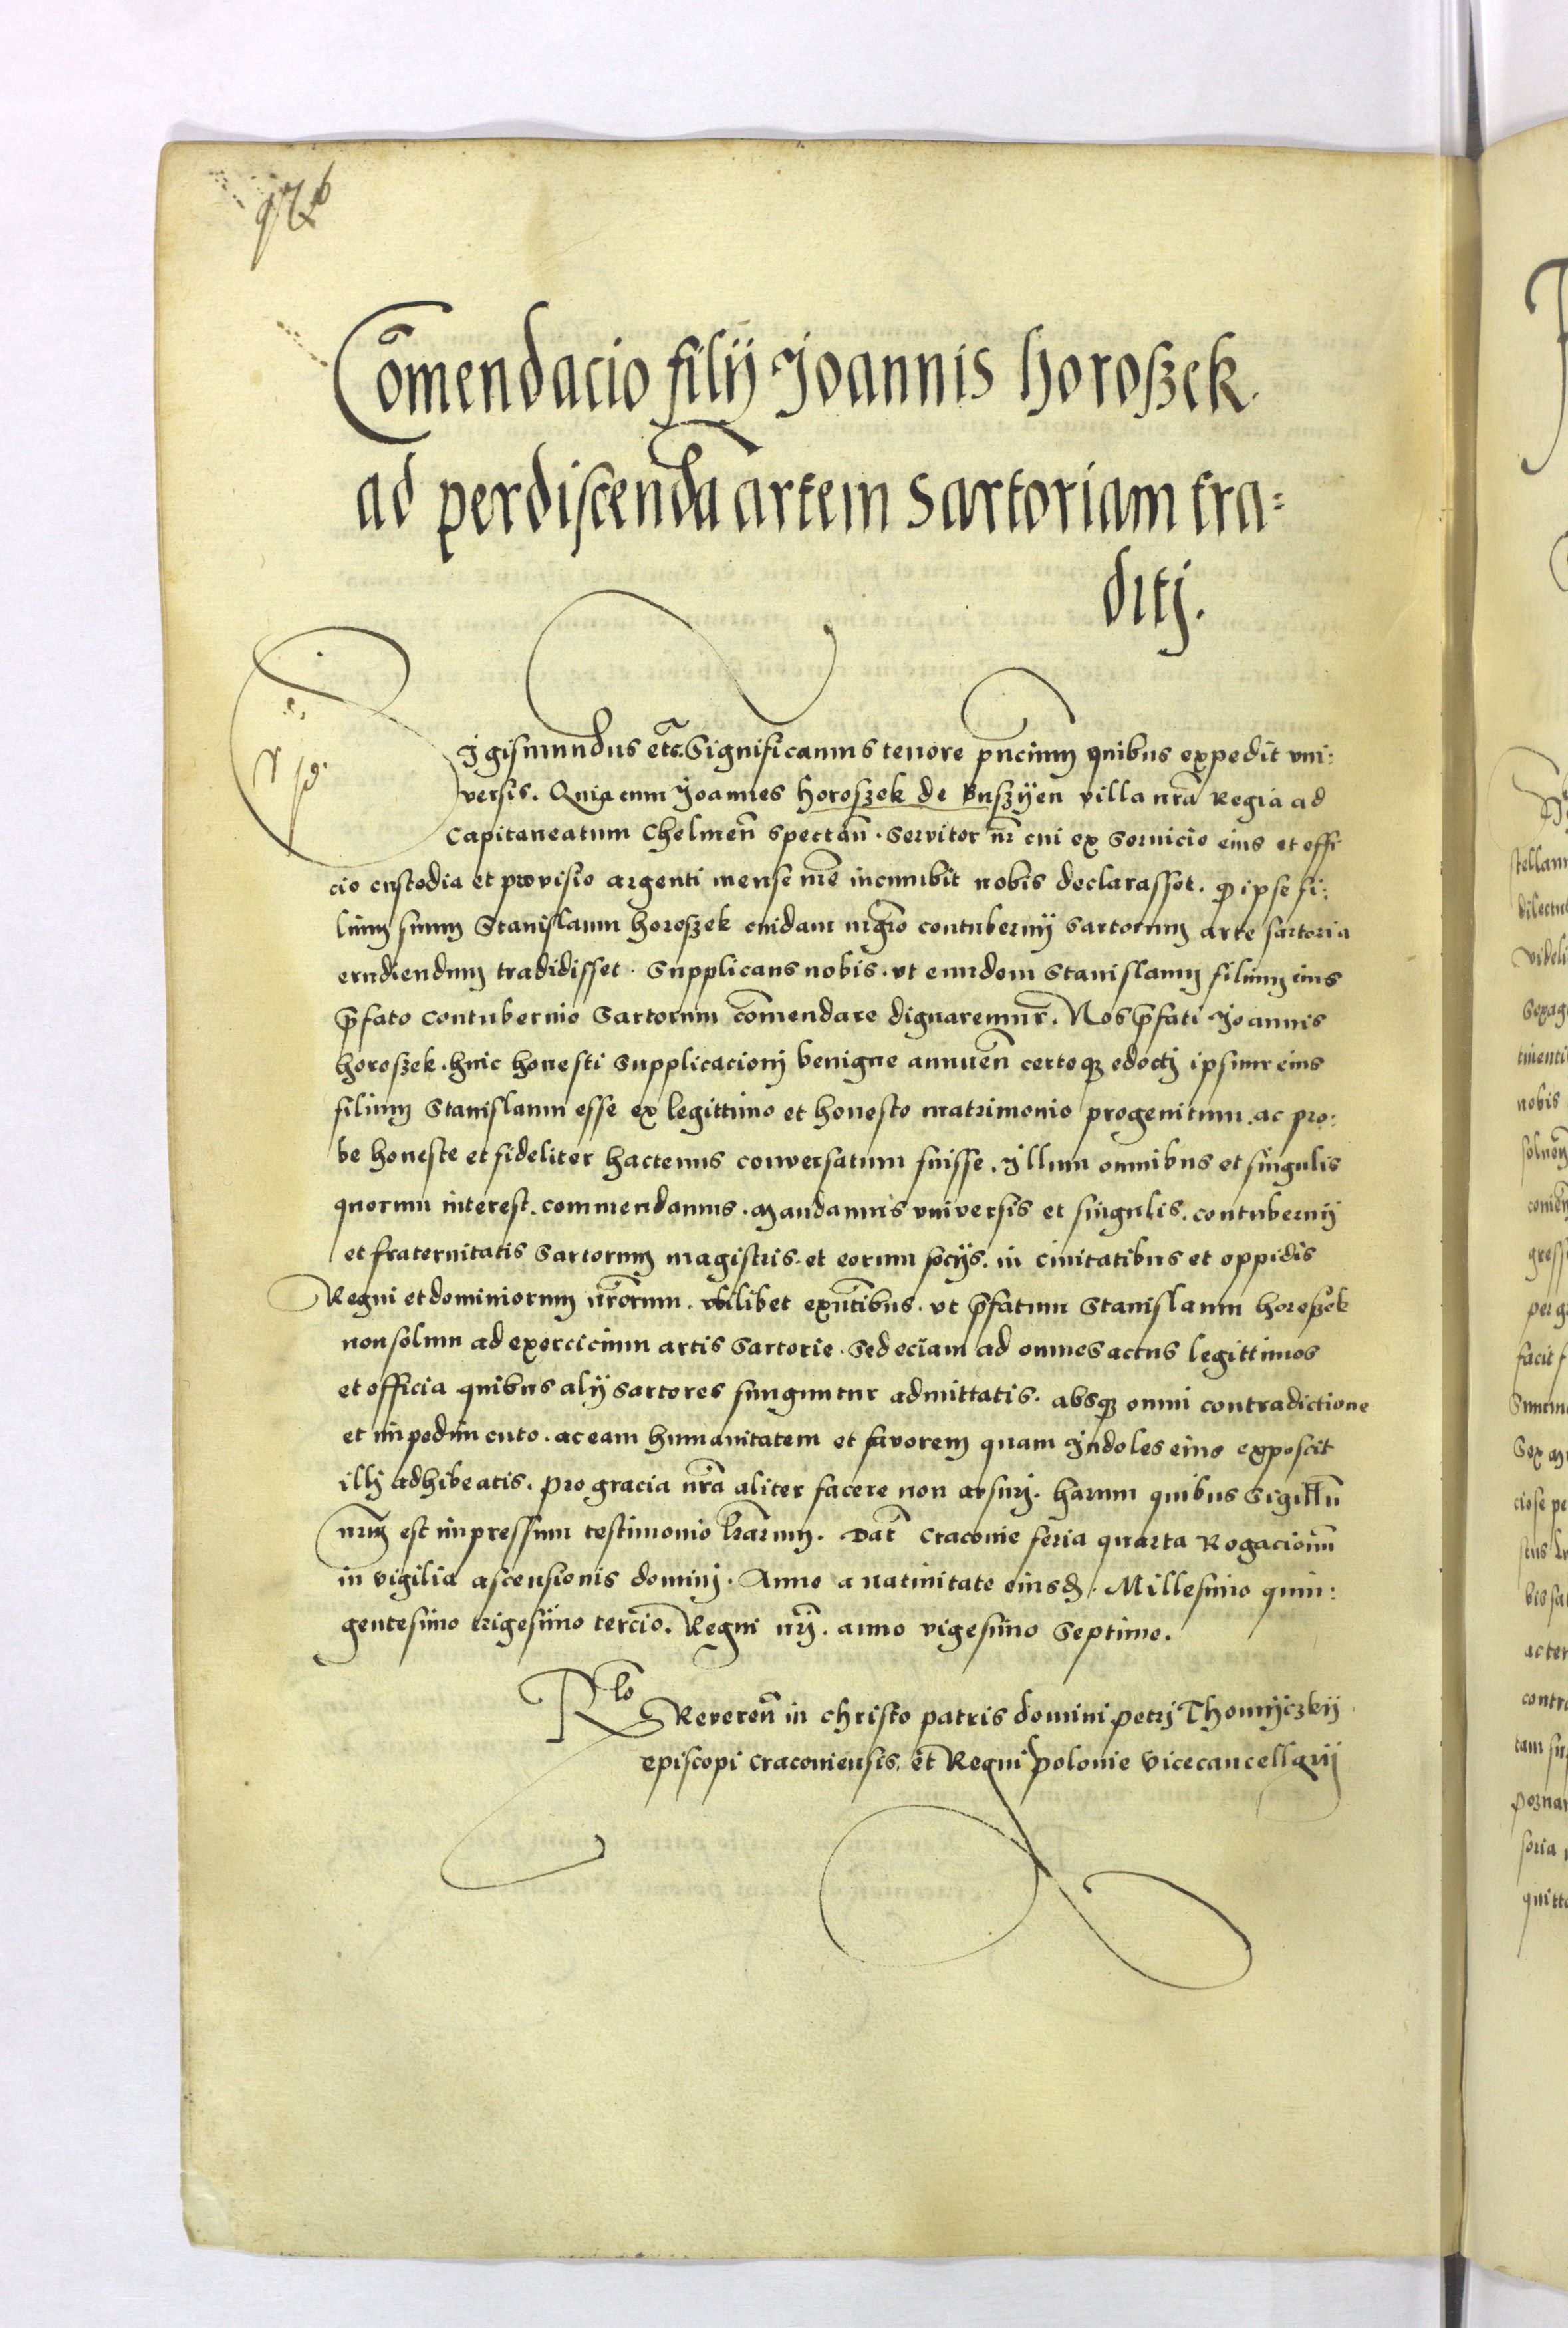 Cõmendacio filij Joannis Horoszek
ad perdiscendã artem Sartoriam tra=
ditj.
Sigismundus etc̃. Significamus tenore pñcium quibus expedit vni:
versis. Quia cum Joannes Horoszek de Buszyen villa nrã Regia ad
Capitaneatum Chelmeñ spectañ. Servitor nr̃ cui ex Servicio eius et offi
cio custodia et provisio argenti mense nrẽ incumbit nobis declarasset. ꝙ ipse fi:
lium suum Stanislaum Horoszek cuidam mgr̃o contubernij Sartorum arte sartoria
erudiendum tradidisset. Supplicans nobis. vt eundem Stanislaum filium eius
p̃fato contubernio Sartorum com̃endare dignaremur̃. Nos p̃fati Joannis
Horoszek. huic honesti Supplicacionj benigne annueñ certoqꝫ edoctj ipsum eius
filium Stanislaum esse ex legittimo et honesto matrimonio progenitum. ac pro:
be honeste et fideliter hactenus conversatum fuisse. Illum omnibus et singulis
quorum interest. commendamus. Mandamus vniversis et singulis. contubernij
et fraternitatis Sartorum magistris. et eorum socijs. in civitatibus et oppidis
Regni et dominiorum nrõrum. vbilibet exñtibus. vt p̃fatum Stanislaum Horoszek
non solum ad exercicium artis Sartorie. Sed eciam ad omnes actus legittimos
et officia quibus alij Sartores funguntur admittatis. absqꝫ omni contradictione
et impedimento. ac eam humanitatem et favorem quam Indoles eius exposcit
illj adhibeatis. pro gracia nrã aliter facere non ausurj. Harum quibus Sigillũ
nrũm est impressum testimonio lrãrum. Dat̃ Cracovie feria quarta Rogacionũ
in vigilia ascensionis dominj. Anno a nativitate eiusd̃. Millesimo quin:
gentesimo trigesimo tercio. Regni nrj̃. anno vigesimo Septimo.
Rlo
Revereñ in christo patris domini petrj Thomijczkij
episcopi Cracoviensis. et Regni Polonie Vicecancellarij